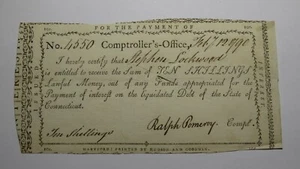 FOR THE PAYMENT OF
No. 4550 Comptroller's-Office, Feb 12 1790
I hereby certify that Stephen Lockwood
is entitled to receive the Sum of TEN SHILLINGS
Lawful Money, out of any Funds appropriated for the
Payment of interest on the Liquidated Debt of the State of
Connecticut.
Ten Shillings Ralph Pomeroy Compt.
HARTFORD: PRINTED BY HUDSON AND GOODWIN.